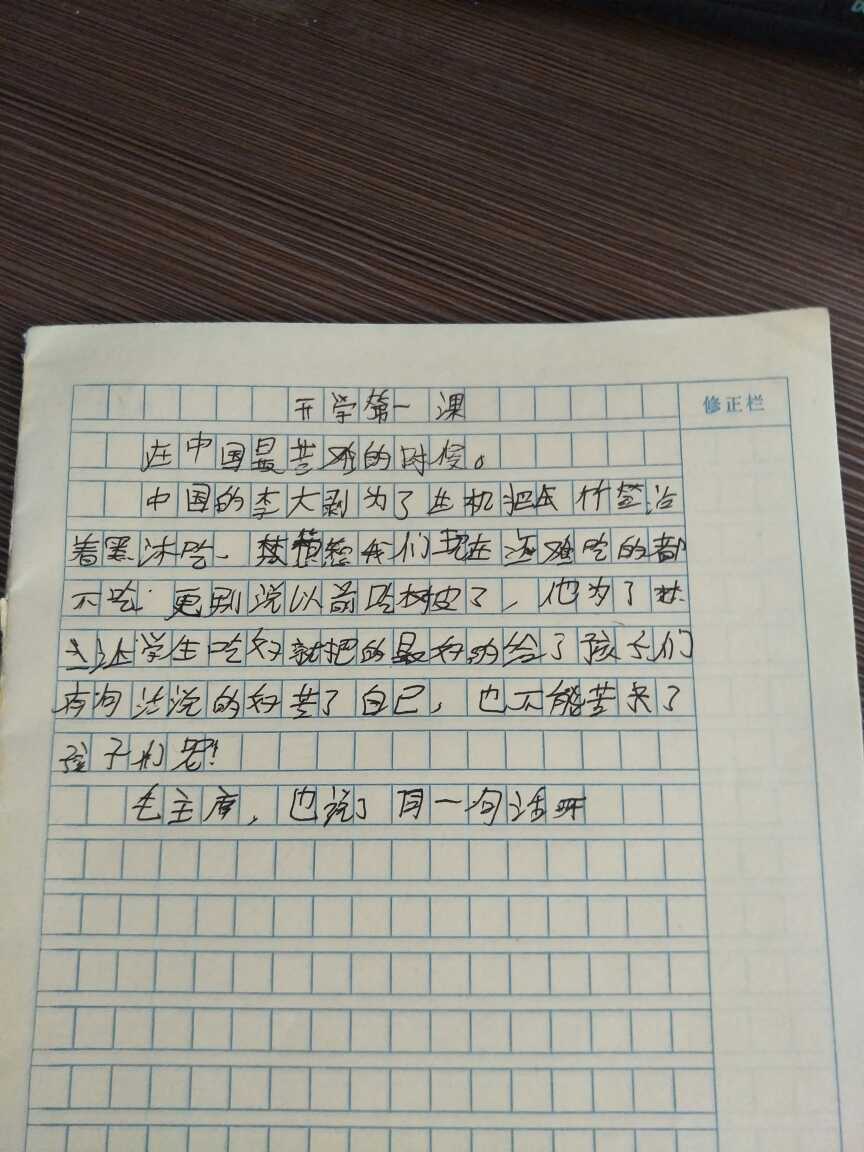 开学第一课
修正栏
在中国最苦难的时候。
中国的李大剥为了生机把 竹签沾
着黑沫吃、 我们现在 难吃的都
不吃. 更别说以前吃树皮了，他为了
学生吃好就把的最好的给了孩子们
有句 说的好苦了自己，也不能苦来了
孩子们
毛主席，也说了 有一句话